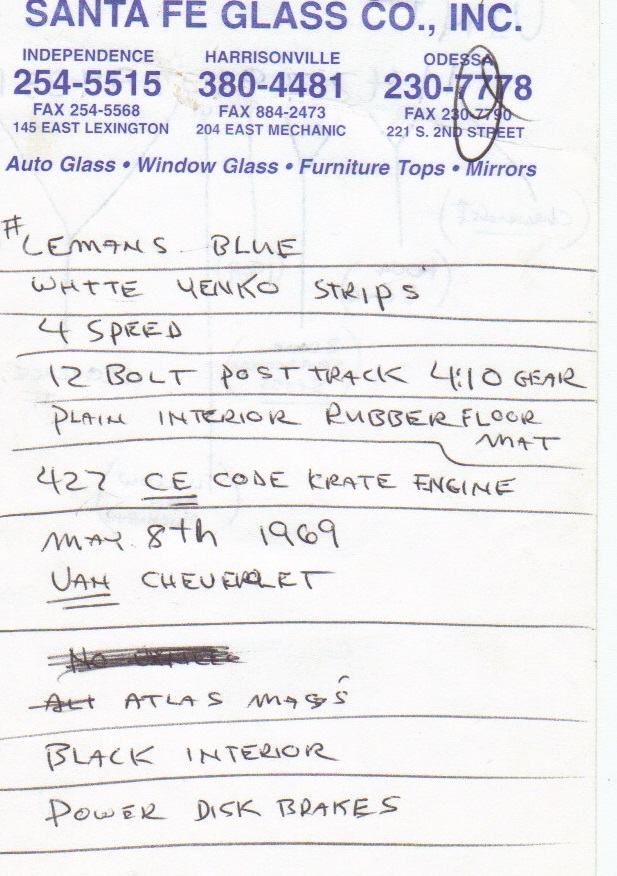 SANTA FE GLASS CO., INC.
INDEPENDENCE HARRISONVILLE ODESSA
254-5515 380-4481 230-7778
FAX 254-5568 FAX 884-2473 FAX 230-7790
145 EAST LEXINGTON 204 EAST MECHANIC 221 S. 2ND STREET
Auto Glass • Window Glass • Furniture Tops • Mirrors
# LEMANS BLUE
WHITE YENKO STRIPS
4 SPEED
12 BOLT POST TRACK 4:10 GEAR
PLAIN INTERIOR RUBBER FLOOR
MAT
427 CE CODE KRATE ENGINE
MAY 8th 1969
VAN CHEVERLET
NO
ALL ATLAS MAGS
BLACK INTERIOR
POWER DISK BRAKES